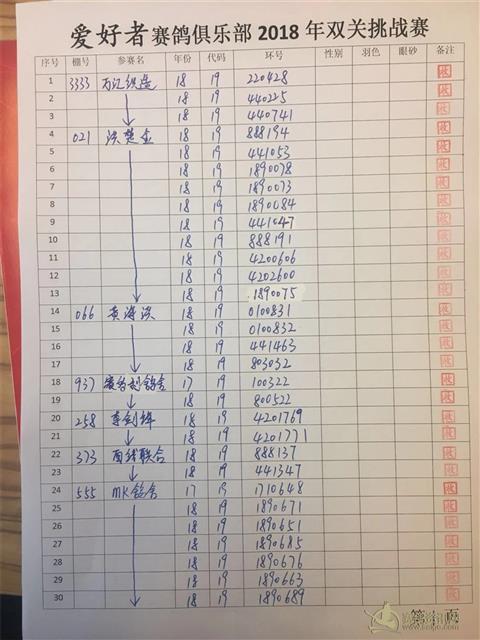 爱好者赛鸽俱乐部 2018 年双关挑战赛
序号 棚号 参赛名 年份 代码 环号 性别 羽色 眼砂 备注
1 3333 万江铁运 18 19 220428
2 18 19 440225
3 18 19 440741
4 021 洪楚金 18 19 888194
5 18 19 441053
6 18 19 1890078
7 18 19 1890073
8 18 19 1890084
9 18 19 441047
10 18 19 888191
11 18 19 4200606
12 18 19 4202600
13 18 19 1890075
14 066 黄海滨 18 19 0100831
15 18 19 0100832
16 18 19 441463
17 18 19 803032
18 937 鸽舍 17 19 100322
19 18 19 800522
20 258 李剑锋 18 19 4201769
21 18 19 4201771
22 373 西线联合 18 19 888137
23 18 19 441347
24 555 MK鸽舍 17 19 1710648
25 18 19 1890671
26 18 19 1890651
27 18 19 1890685
28 18 19 1890676
29 18 19 1890663
30 18 19 1890689
第 页